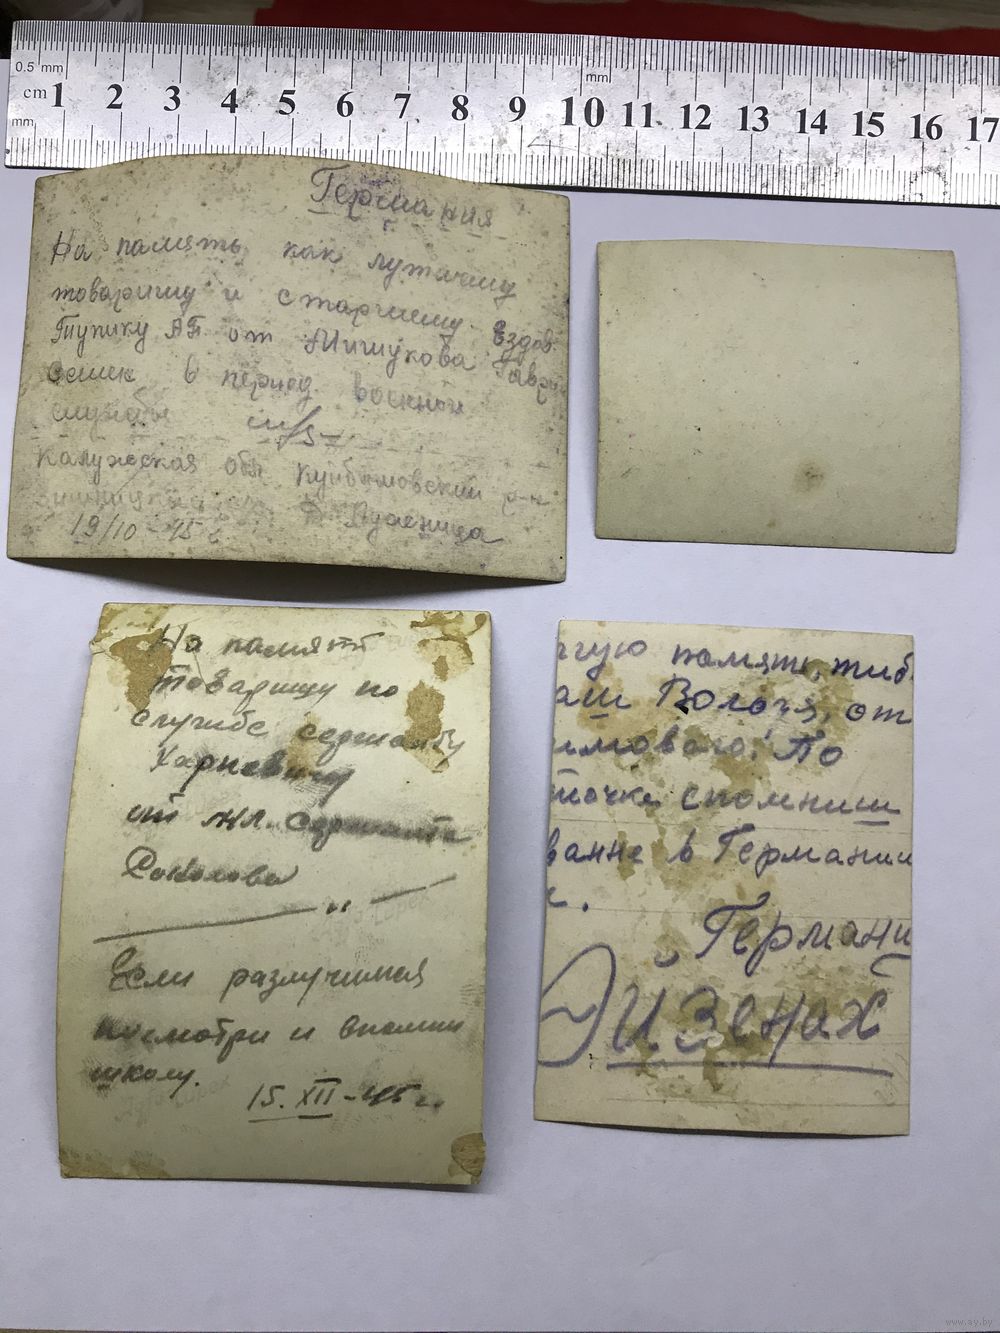 0.5 mm
mm
cm 1 2 3 4 5 6 7 8 9 10 11 12 13 14 15 16 17
mm
Германия
На память как лутчему
товарищу и старшему Ездов.
Тупику АП от Мишукова Гаври
в период военной
службы
Калужская обл куйбышовский р-н
19/10-45 г
На памятъ
товарищу по
службе сержанту
Харкевичу
от мл. сержанта
Соколова
Если разлучимся
посмотри и вспомни
школу.
15. XII-45 г.
гую память, тиб
аш Вологя, от
имового! По
точке спомниш
вание в Германии
с.
Германи
Эизенах
www.ay.by